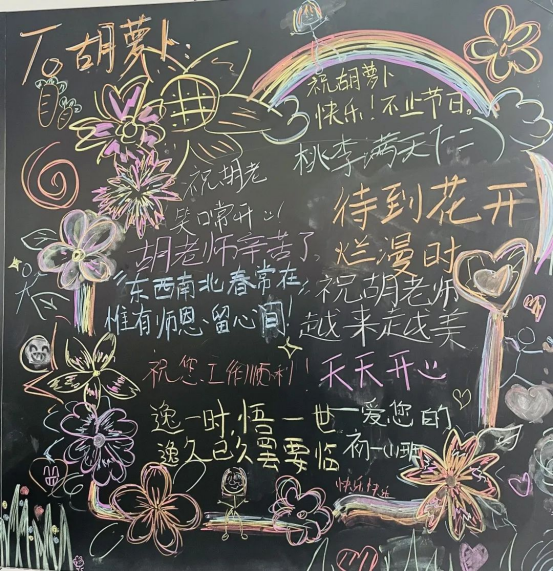 To 胡萝卜:
祝胡萝卜
快乐!不止节日。
桃李满天下
祝胡老
笑口常开
待到花开
烂漫时
胡老师辛苦了
"东西南北春常在
惟有师恩留心间"
祝胡老师
越来越美
祝您工作顺利!
天天开心
逸一时,悟一世
逸久已久罢要临
一爱您的
初一小班